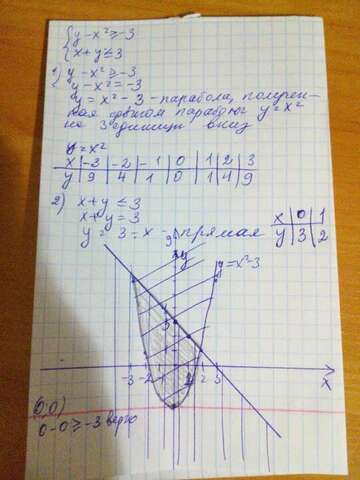 { y - x² ≥ -3
{ x + y ≤ 3
1) y - x² ≥ -3
y - x² = -3
y = x² - 3 - парабола, получен-
ная сдвигом параболы y = x²
на 3 единицы вниз
y = x²
x | -3 | -2 | -1 | 0 | 1 | 2 | 3
y | 9 | 4 | 1 | 0 | 1 | 4 | 9
2) x + y ≤ 3
x + y = 3
y = 3 - x - прямая
x | 0 | 1
y | 3 | 2
9
y
y = x² - 3
-3 -2 1 2 3
x
(0;0)
0 - 0 ≥ -3 верно